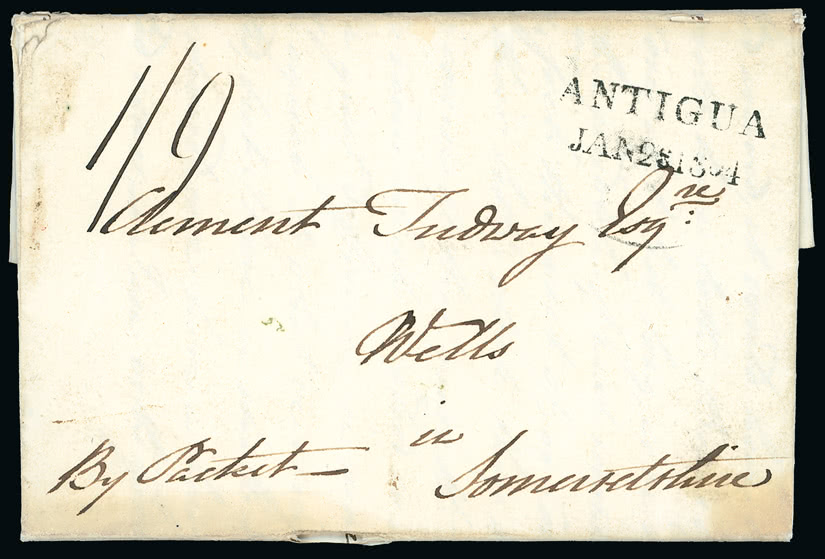 1/9
ANTIGUA
JAN 28 1804
Clement Tudway Esqre:
Wells
in
By Packet— Somersetshire